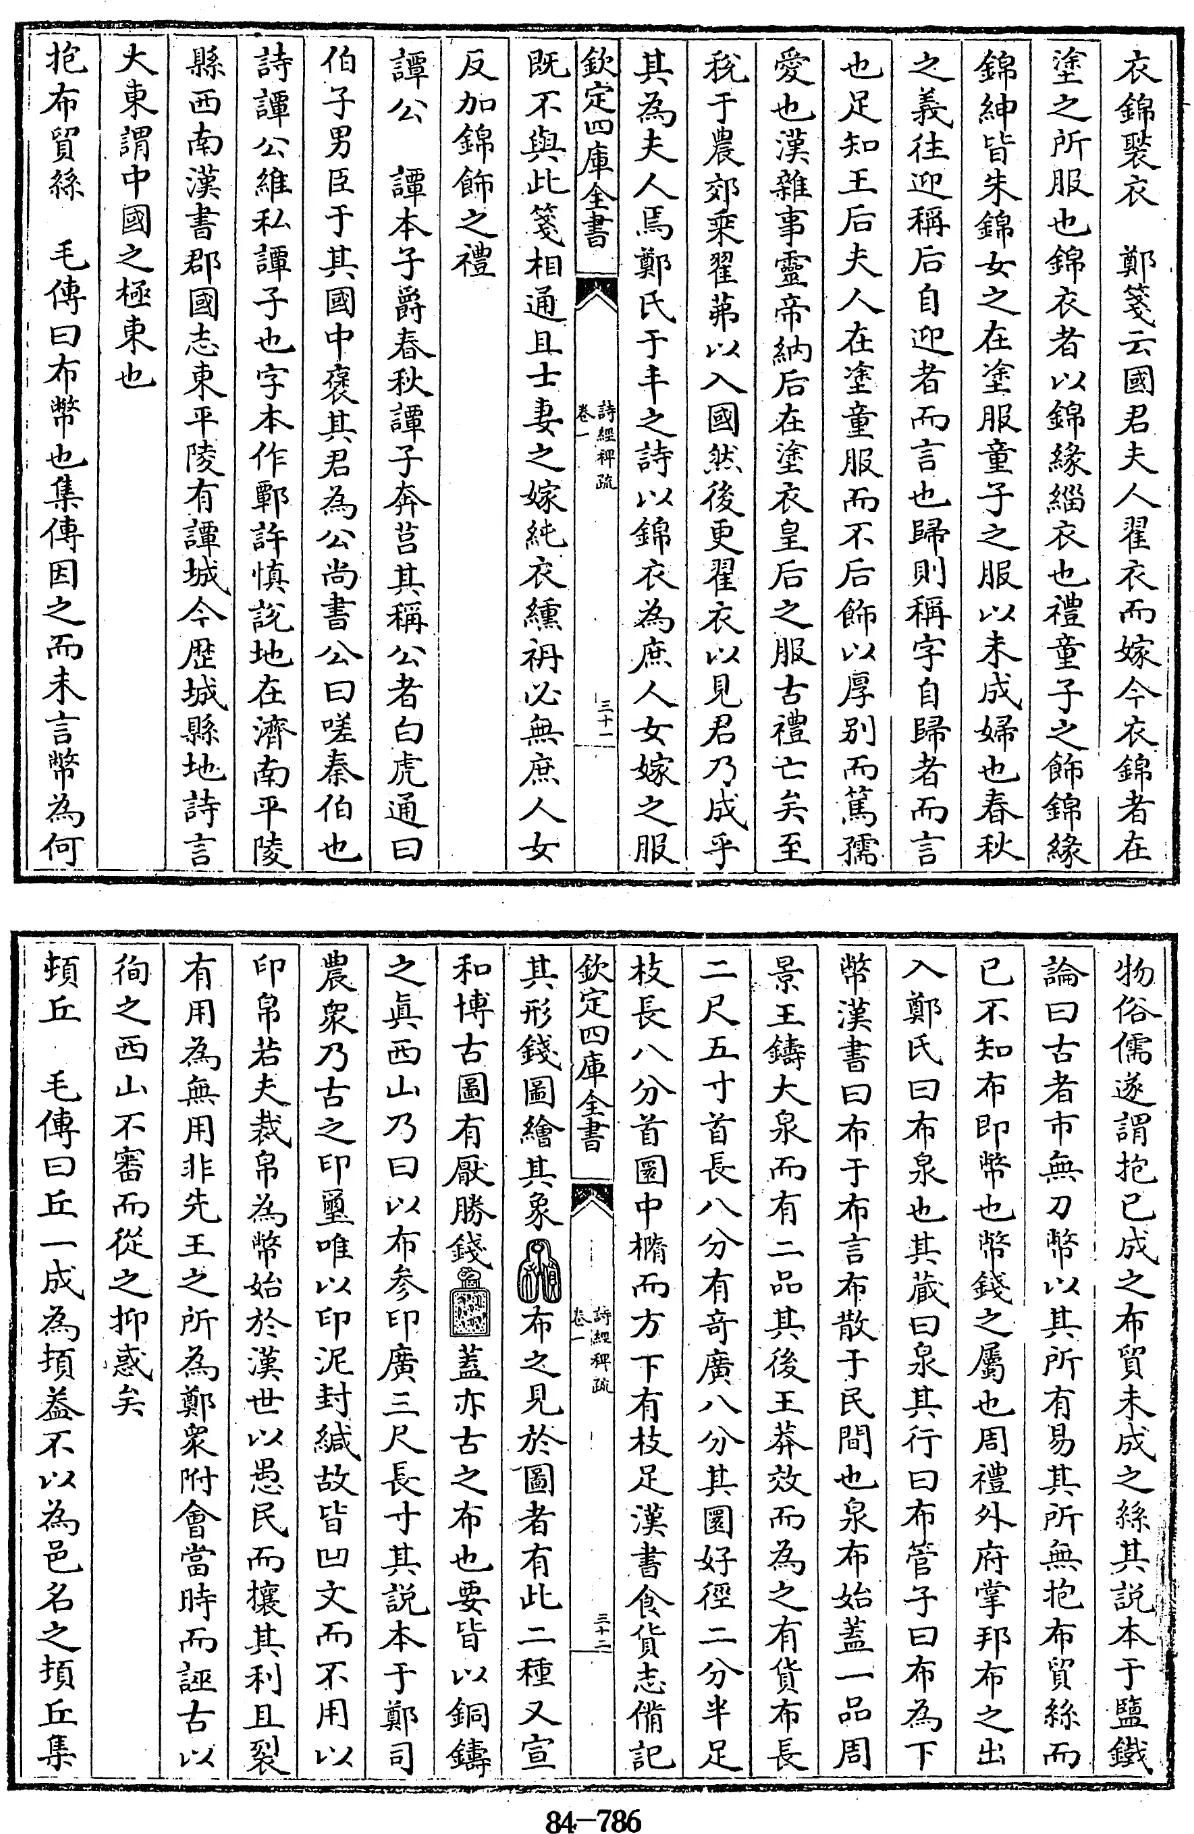 衣錦褧衣　鄭箋云國君夫人翟衣而嫁今衣錦者在
塗之所服也錦衣者以錦緣緇衣也禮童子之飾錦緣
錦紳皆朱錦女之在塗服童子之服以未成婦也春秋
之義往迎稱后自迎者而言也歸則稱字自歸者而言
也足知王后夫人在塗童服而不后飾以厚别而篤孺
愛也漢雜事靈帝納后在塗衣皇后之服古禮亡矣至
稅于農郊乘翟茀以入國然後更翟衣以見君乃成乎
其為夫人焉鄭氏于丰之詩以錦衣為庶人女嫁之服
欽定四庫全書
詩經稗疏
卷一
三十一
既不與此箋相通且士妻之嫁純衣纁袡必無庶人女
反加錦飾之禮
譚公　譚本子爵春秋譚子奔莒其稱公者白虎通曰
伯子男臣于其國中褒其君為公尚書公曰嗟秦伯也
詩譚公維私譚子也字本作鄲許慎說地在濟南平陵
縣西南漢書郡國志東平陵有譚城今歴城縣地詩言
大東謂中國之極東也
抱布貿絲　毛傳曰布幣也集傳因之而未言幣為何
物俗儒遂謂抱已成之布貿未成之絲其説本于鹽鐵
論曰古者市無刀幣以其所有易其所無抱布貿絲而
已不知布即幣也幣錢之屬也周禮外府掌邦布之出
入鄭氏曰布泉也其蔵曰泉其行曰布管子曰布為下
幣漢書曰布于布言布散于民間也泉布始蓋一品周
景王鑄大泉而有二品其後王莽效而為之有貨布長
二尺五寸首長八分有奇廣八分其圜好徑二分半足
枝長八分首圜中橢而方下有枝足漢書食貨志備記
欽定四庫全書
詩經稗疏
卷一
三十二
其形錢圖繪其象布之見於圖者有此二種又宣
和博古圖有厭勝錢蓋亦古之布也要皆以銅鑄
之眞西山乃曰以布参印廣三尺長寸其説本于鄭司
農衆乃古之印璽唯以印泥封緘故皆凹文而不用以
印帛若夫裁帛為幣始於漢世以愚民而攘其利且裂
有用為無用非先王之所為鄭衆附會當時而誣古以
徇之西山不審而從之抑惑矣
頓丘　毛傳曰丘一成為頓葢不以為邑名之頓丘集
84—786